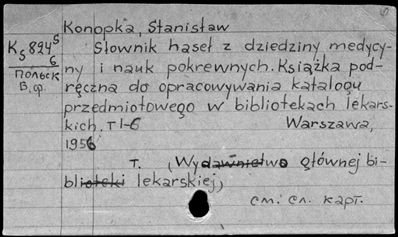 Konopka, Stanisław
Ks 894 5/6
Польск
В.ф.
Słownik haseł z dziedziny medycy-
ny i nauk pokrewnych. Książka pod-
ręczna do opracowywania katalogu
przedmiotowego w bibliotekach lekars-
kich. T 1-6 Warszawa,
1956
т. (Wydawnictwo głównej bi-
blioteki lekarskiej)
см. сл. карт.